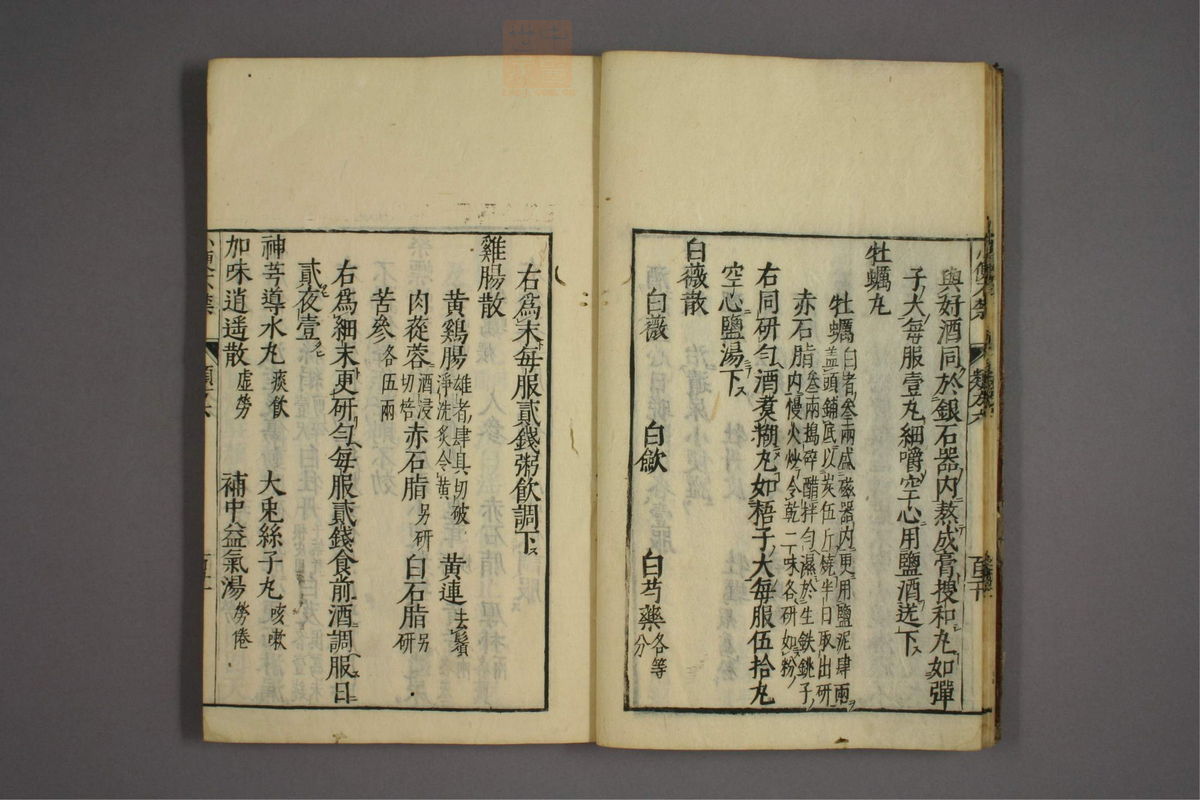 與好酒同於銀石器內熬成膏搜和丸如彈
子大每服壹丸細嚼空心用鹽酒送下
牡蠣丸
牡蠣白者叁兩盛磁器內更用鹽泥肆兩盖頭鋪底以炭伍斤燒半日取出研
赤石脂叁兩搗碎醋拌勻濕於生鉄銚子內慢火炒令乾二味各研如粉
右同研勻酒煑糊丸如梧子大每服伍拾丸
空心鹽湯下
白薇散
白薇 白斂 白芍藥各等分
右爲末每服貳錢粥飲調下
雞腸散
黃鷄腸雄者肆具切破淨洗炙令黃 黃連去鬚
肉蓯蓉酒浸切焙 赤石脂另研 白石脂另研
苦參各伍兩
右爲細末更研勻每服貳錢食前酒調服日
貳夜壹
神芎導水丸痰飲 大兎絲子丸咳嗽
加味逍遥散虛勞 補中益氣湯勞倦